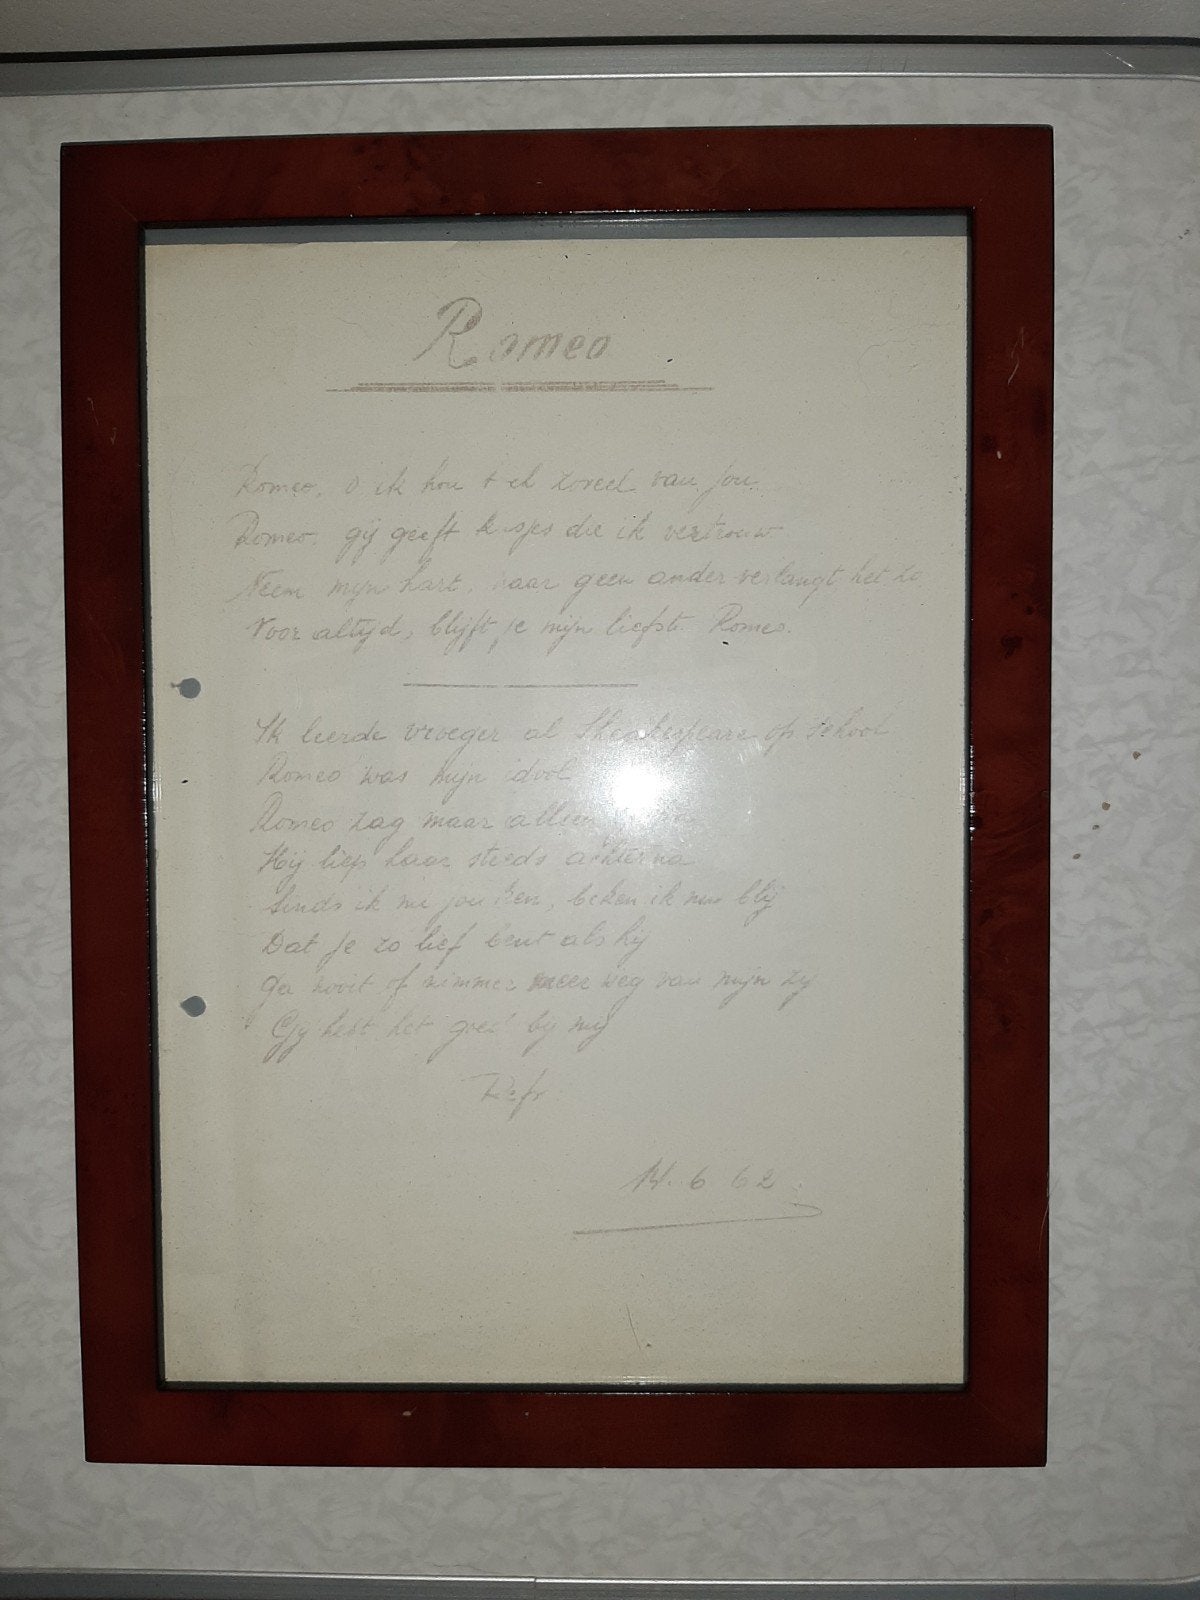 Romeo
Romeo, O ik hou toch zoveel van jou
Romeo, gij geeft kusjes die ik vertrouw
Neem mijn hart, waar geen ander verlangt het zo
Voor altijd, blijft je mijn liefste Romeo.
Ik leerde vroeger al Sheakespeare op school
Romeo was mijn idool
Romeo zag maar alleen
Hij liep haar steeds achterna
Sinds ik jou ken, beken ik blij
Dat je zo lief bent als hij
Ga nooit of nimmer meer weg van mijn zij
Gij hebt het goed bij mij
Refr.
14. 6 62